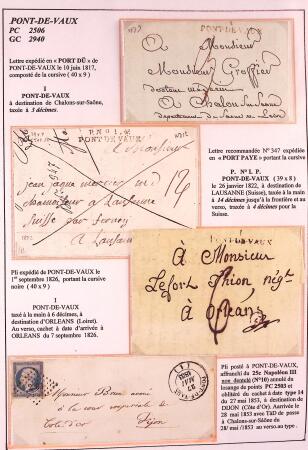 PONT-DE-VAUX
PC 2506
GC 2940
Lettre expédié en « PORT DÛ » de
PONT-DE-VAUX le 10 juin 1817,
composté de la cursive ( 40 x 9 )
1
PONT-DE-VAUX
à destination de Chalons-sur-Saône,
taxée à 3 décimes.
PONT-DE-VAUX
A Monsieur
Monsieur
A Chalon
département de
Lettre recommandée N° 347 expédiée
en « PORT PAYE » portant la cursive
P. N° 1. P.
PONT-DE-VAUX (39 x 8)
le 26 janvier 1822, à destination de
LAUSANNE (Suisse), taxée à la main
à 14 décimes jusqu'à la frontière et au
verso, taxée à 4 décimes pour le
Suisse.
PONT DE VAUX
A Monsieur
Jean
Suisse par
à Lausanne
Pli expédié de PONT-DE-VAUX le
1er septembre 1826, portant la cursive
noire (40 x 9)
1
PONT-DE-VAUX
taxé à la main à 6 décimes, à
destination d'ORLEANS (Loiret).
Au verso, cachet à date d'arrivée à
ORLEANS du 7 septembre 1826.
PONT-DE-VAUX
à Monsieur
Lefort
à Orleans
Pli posté à PONT-DE-VAUX,
affranchi du 25c Napoléon III
non dentelé (N°10) annulé du
losange de points PC 2503 et
oblitéré du cachet à date type 14
du 27 mai 1853, à destination de
DIJON (Côte d'Or). Arrivée le
28 mai 1853 avec TàD de passe
à Chalons-sur-Saône du
28/ mai /1853 au verso.
Monsieur
à la cour impériale
Côte d'or Dijon